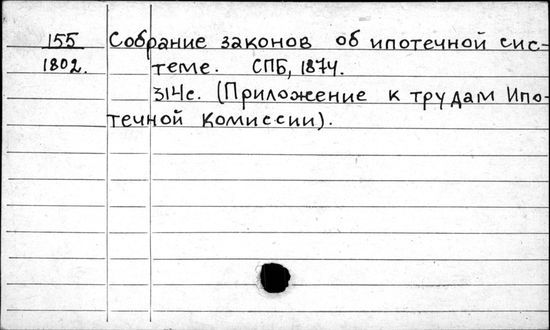 155 Собрание законов об ипотечной сис-
1802. теме. СПБ, 1874.
314с. (Приложение к трудам Ипо-
течной Комиссии).